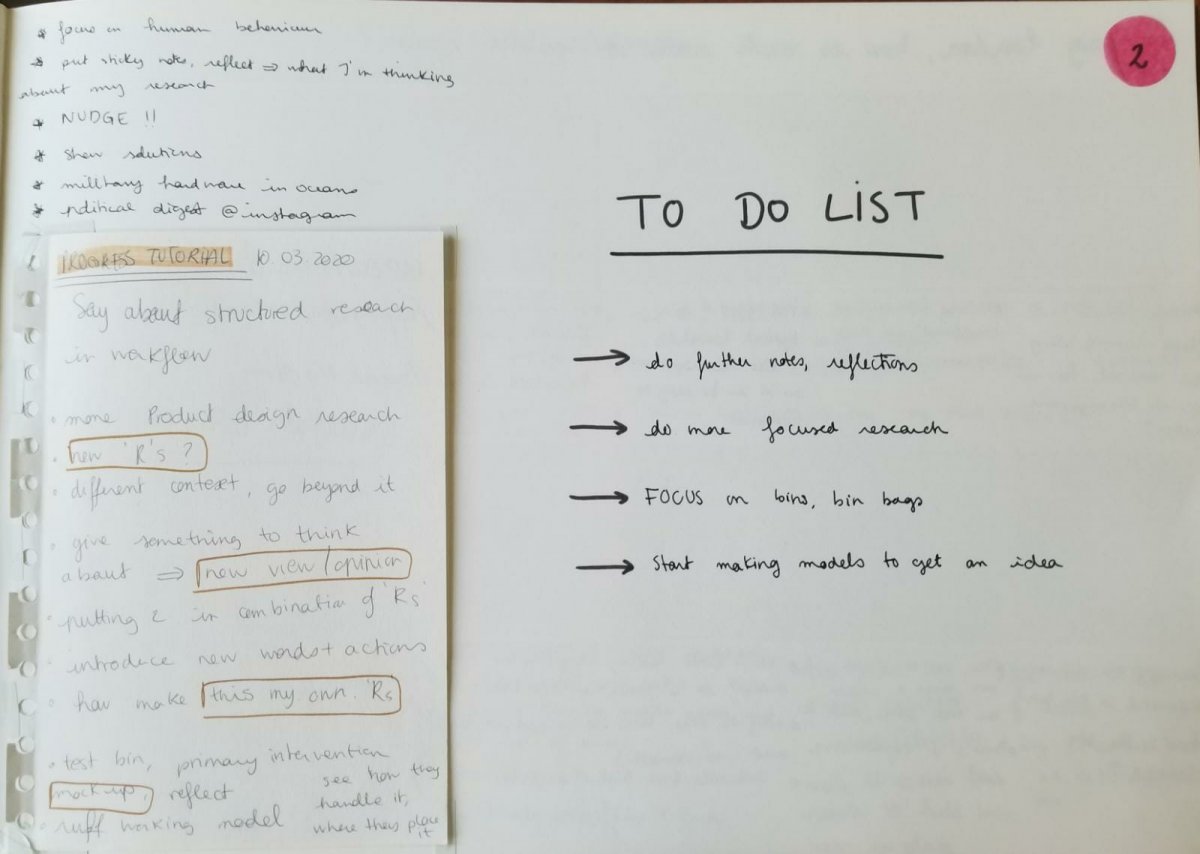 * focus on human behaviour
* put sticky notes, reflect ⇒ what I'm thinking
about my research
* NUDGE !!
* show solutions
* military hardware in oceans
* political digest @instagram
PROGRESS TUTORIAL 10.03.2020
Say about structured research
in workflow
• more Product design research
• new 'R's ?
• different context, go beyond it
• give something to think
about ⇒ new view/opinion
• putting 2 in combination of 'Rs'
• introduce new words + actions
• how make this my own 'Rs
• test bin, primary intervention
mock up, reflect
see how they
handle it,
where they place
it
• ruff working model
2
TO DO LIST
→ do further notes, reflections
→ do more focused research
→ FOCUS on bins, bin bags
→ Start making models to get an idea